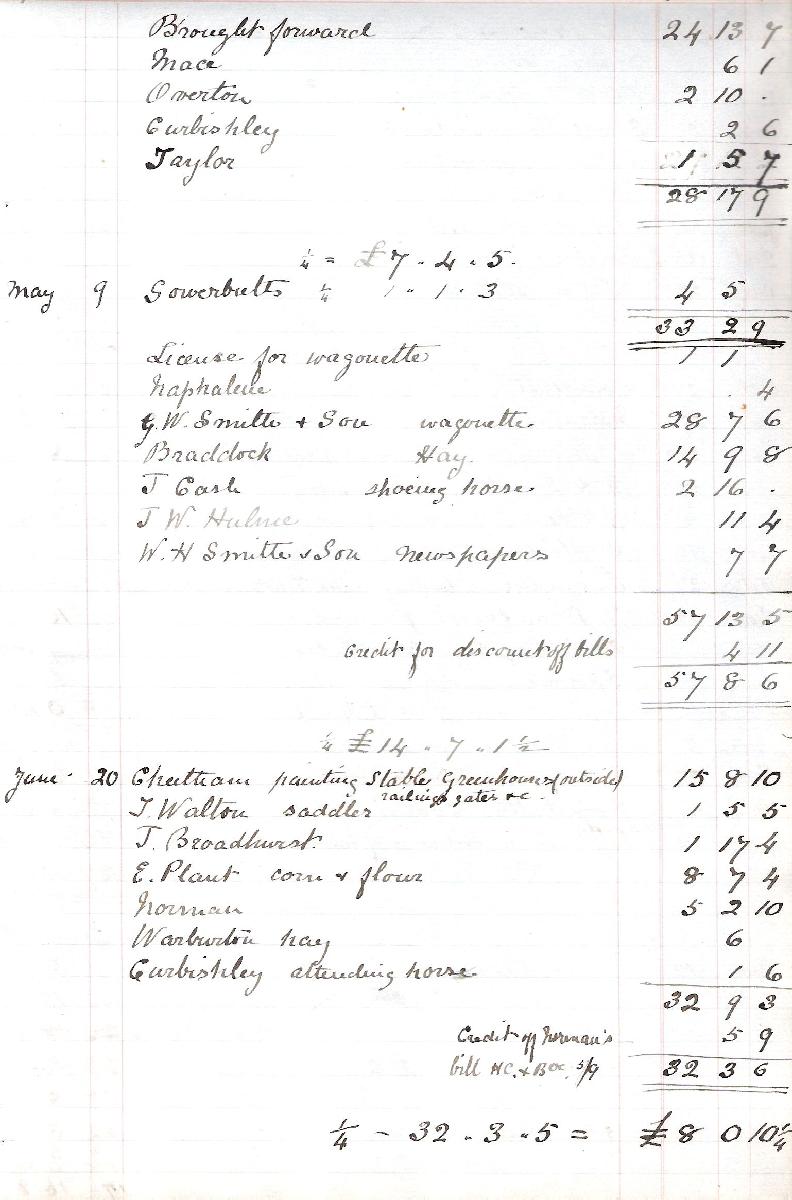 Brought forward 24 13 7
Mace 6 1
Overton 2 10 .
Curbishley 2 6
Taylor 1 5 7
28 17 9
¼ = £7 . 4 . 5.
May 9 Sowerbutts ¼ 1 . 1 . 3 4 5
33 2 9
License for wagonette 1 1
Naphalene . 4
G.W. Smith + Son wagonette. 28 7 6
Braddock Hay. 14 9 8
J Cash shoeing horse. 2 16 .
J W. Hulme 11 4
W. H Smith & Son newspapers 7 7
57 13 5
Credit for discount off bills 4 11
57 8 6
¼ £14 . 7 . 1½
June 20 Cheetham painting Stable, Greenhouses (outside) 15 8 10
railings gates &c.
T. Walton saddler 1 5 5
J. Broadhurst 1 17 4
E. Plant corn & flour 8 7 4
Norman 5 2 10
Warburton hay 6
Curbishley attending horse. 1 6
32 9 3
Credit off Norman's 5 9
bill HC. & 5/9 32 3 6
¼ – 32 . 3 . 5 = £8 0 10¼